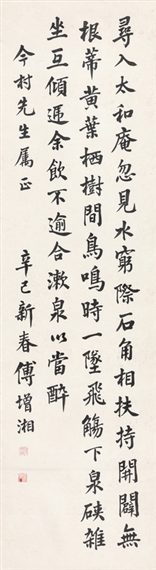 尋入太和庵忽見水窮際石角相扶持開闢無
根蒂黃葉栖樹間鳥鳴時一墜飛觴下泉硤雜
坐互傾遞余飲不逾合漱泉以當醉
今村先生屬正 辛巳新春傅增湘